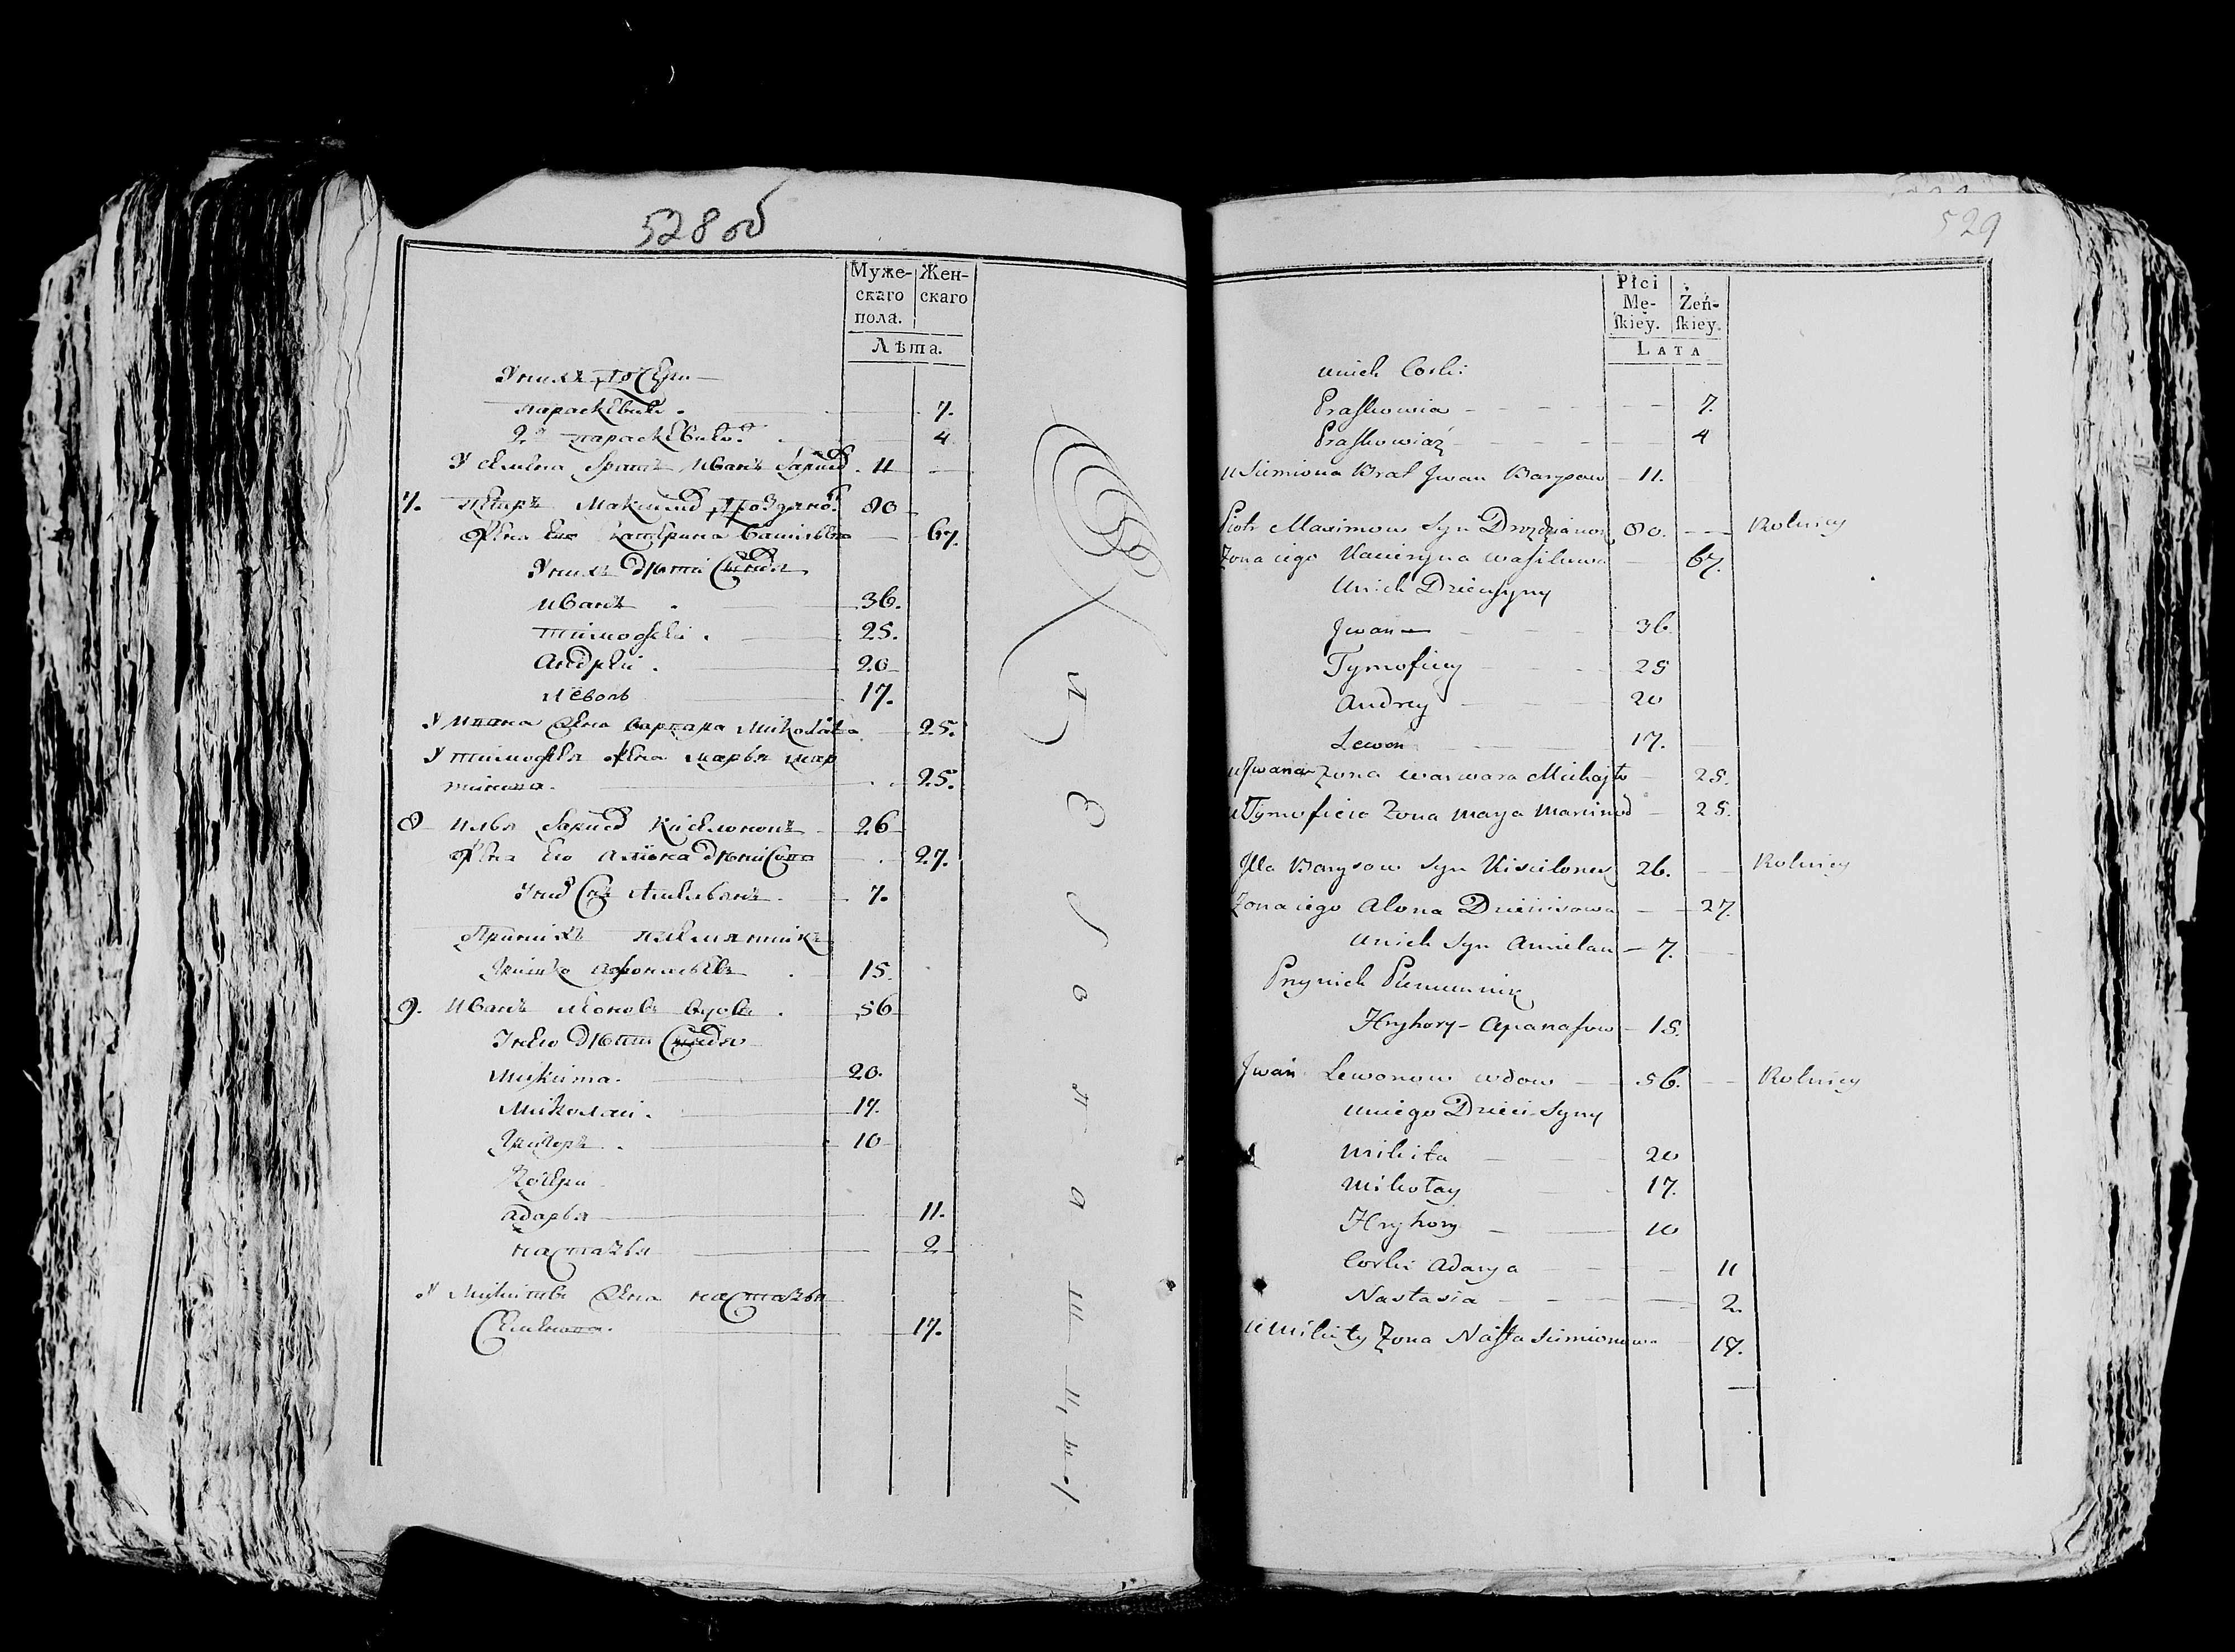 528 об
Муже-
скаго
пола.
Жен-
скаго
Лѣта.
У нихъ дочери
параскевия. 7.
2я параскевия 4
У семена братъ иванъ барисов. 11
7. петръ максимов дрозданов. 80
жена его катерина василева 67.
У нихъ дѣти сыновя
иванъ 36.
тимофеи. 25.
андреи. 20
левонъ 17.
У ивана жена варвара миколаева 25.
У тимофея жена марья мар
тинова. 25.
8 илья барисов киселіонокъ 26
жена его алiона дѣнисова 27.
У них снъ амельянъ. 7.
При нихъ племянникъ
григо афонасьевъ 15.
9. иванъ леоновъ вдовъ. 56
У нево дѣти сыновя
микита. 20.
миколаи. 17.
григоръ. 10
дочери
адарья 11.
настазья 2
У микиты жена настазья
семенова. 17.
Хлѣбопашцы
529
Płci
Mę-
skiey.
Żeń-
skiey.
LATA
unich Corki:
Praskowia 7.
Praskowia 2 4
u Siemiona Brat Jwan Barysow 11.
Piotr Maximow Syn Drozdzianow 80. Rolnicy
Zona iego Kacieryna Wasilowa 67.
Unich Dzieci syny
Jwan 36
Tymofiey 25
Andrey 20
Lewon 17.
u Jwana Zona warwara Michajło 25.
u Tymofieia Zona marya Marcinod 25.
Jlla Barysow Syn Kisielonek 26. Rolnicy
Zona iego Alona Dzienisowa 27.
unich Syn Amielan 7.
Przynich Plemiennik
Hryhory Apanasow 15.
Jwan Lewonow wdow 56. Rolnicy
uniego Dzieci Syny
Mikita 20
Mikołay 17.
Hryhory 10
Corki Adarya 11
Nastasia 2.
u Mikity Zona Nasta siemionowa 17.